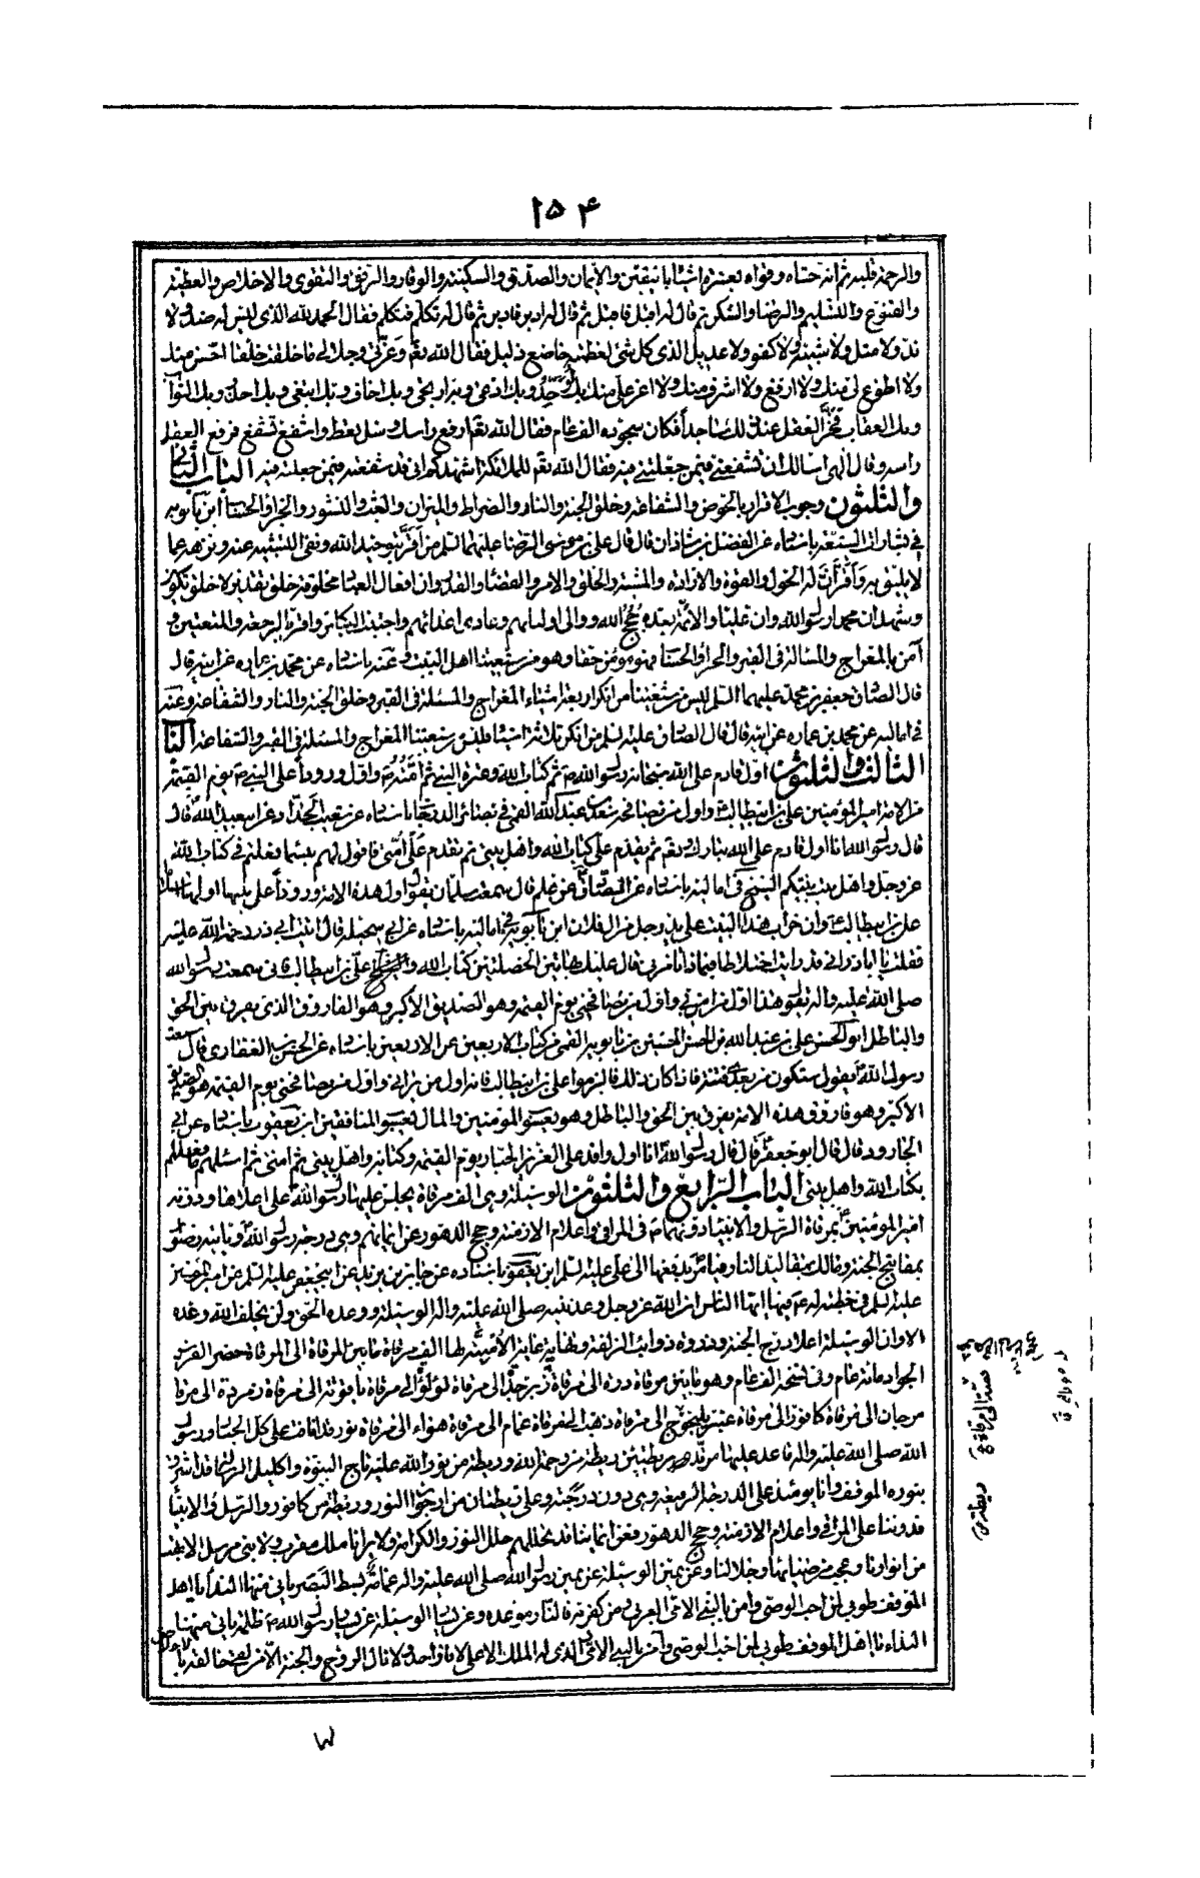 ۱۵۴
والرحمة قلبه ثم انه حشاه وقواه بعشرة اشياء باليقين والايمان والصدق والسكينة والوقار والرفق والتقوى والاخلاص والعطية
والقنوع والتسليم والرضا والشكر ثم قال له اقبل فاقبل ثم قال له ادبر فادبر ثم قال له تكلم فتكلم فقال الحمد لله الذي ليس له ضد ولا
ند ولا مثل ولا شبيه ولا كفو ولا عديل الذي كل شئ لعظمته خاضع ذليل فقال الله تعم وعزتي وجلالي ما خلقت خلقا احسن منك
ولا اطوع لي منك ولا ارفع ولا اشرف منك ولا اعز علي منك بك اوحد وبك ادعى وبك ارتجى وبك اخاف وبك ابتغى وبك احذر وبك الثواب
وبك العقاب فخر العقل عند ذلك ساجدا فكان سجوده الف عام فقال الله تعم ارفع راسك وسل تعط واشفع تشفع فرفع العقل
راسه وقال الهي اسالك ان تشفعني فيمن جعلتني فيه فقال الله تعم للملائكة اشهدكم اني قد شفعته فيمن جعلته فيه الباب الثاني
والثلثون وجوب الاقرار بالحوض والشفاعة وخلق الجنة والنار والصراط والميزان والبعث والنشور والجزاء والحساب ابن بابويه
في باسناده عن الفضل بن شاذان قال قال علي بن موسى الرضا عليهما السلم من اقر بتوحيد الله ونفى التشبيه عنه ونزهه عما
لا يليق به واقر ان له الحول والقوة والارادة والمشية والخلق والامر والقضاء والقدر وان افعال العباد مخلوقة خلق تقدير لا خلق تكوين
وشهد ان محمدا رسول الله وان عليا والائمة بعده حجج الله ووالى اولياءهم وعادى اعدائهم واجتنب الكبائر واقر بالرجعة والمتعتين و
آمن بالمعراج والمسالة في القبر والحوض وهو مؤمن حقا وهو من شيعتنا اهل البيت وعنه باسناده عن محمد بن عمارة عن ابيه قال
قال الصادق جعفر بن محمد عليهما السلم ليس من شيعتنا من انكر اربعة اشياء المعراج والمسئلة في القبر وخلق الجنة والنار والشفاعة وعنه
في اماليه عن محمد بن عمارة عن ابيه قال قال الصادق عليه السلم من انكر ثلاثة اشياء فليس من شيعتنا المعراج والمسئلة في القبر والشفاعة الباب
الثالث والثلثون اول قادم على الله سبحانه رسول الله ص ثم كتاب الله وعترة النبي ثم امته واول ورودا على النبي ص يوم القيمة
من الامة امير المؤمنين علي بن ابيطالب واول من يصافحه سعد بن عبد الله القمي في بصائر الدرجات باسناده عن شعيب الحداد عن ابي عبد الله قال
قال رسول الله انا اول قادم على الله تبارك وتعم ثم يقدم علي كتاب الله واهل بيتي ثم يقدم علي امتي فاقول لهم بئسما فعلتم في كتاب الله
عز وجل واهل بيت نبيكم الشيخ في اماليه باسناده عن عن عليم قال سمعت سلمان يقول اول هذه الامة ورودا على نبيها اولها اسلاما
علي بن ابيطالب وان خراب هذا البيت على يد رجل من ال فلان ابن بابويه في اماليه باسناده عن ابي سخيلة قال اتيت ابي ذر رحمة الله عليه
فقلت يا اباذر اني قد رايت اختلاطا فبماذا تامرني قال عليك بهاتين الخصلتين كتاب الله والشيخ علي بن ابيطالب فاني سمعت رسول الله
صلى الله عليه واله يقول هذا اول من امن بي واول من يصافحني يوم القيمة وهو الصديق الاكبر وهو الفاروق الذي يفرق بين الحق
والباطل ابو الحسن علي بن عبيد الله بن الحسن الحسين بن بابويه القمي في كتاب الاربعين عن الاربعين باسناده عن الغفاري قال سمعت
رسول الله يقول ستكون من بعدي فتنة فاذا كان ذلك فالزموا علي بن ابيطالب فانه اول من يراني واول من يصافحني يوم القيمة هو الصديق
الاكبر وهو فاروق هذه الامة يفرق بين الحق والباطل وهو يعسوب المؤمنين والمال يعسوب المنافقين ابن يعقوب باسناده عن ابي
الجارود قال قال ابو جعفر قال قال رسول الله انا اول وافد على العزيز الجبار يوم القيمة وكتابه واهل بيتي ثم امتي ثم اسئلهم ما فعلتم
بكتاب الله واهل بيتي الباب الرابع والثلثون الوسيلة وهي الف مرقاة يجلس عليها رسول الله على اعلاها ودونه
امير المؤمنين بمرقاة الرسل والانبياء وقوفهم في المراقي واعلام الازمنة وحجج الدهور عن ايمانهم وهي درجة رسول الله وياتيه رضوان
بمفاتيح الجنة ومالك بمقاليد النار فيامر بدفعها الى علي عليه السلم ابن يعقوب باسناده عن جابر بن يزيد عن ابيجعفر عليه السلم عن امير المؤمنين
عليه السلم في خطبة له ع فيها ايها الناس ان الله عز وجل وعد نبيه صلى الله عليه واله الوسيلة ووعده الحق ولن يخلف الله وعده
الا وان الوسيلة اعلا درج الجنة وذروة ذوائب الزلفة ونهاية غاية الامنية لها الف مرقاة ما بين المرقاة الى المرقاة حضر الفرس
الجواد مائة عام وفي نسخة الف عام وهو ما بين مرقاة درة الى مرقاة زبرجد الى مرقاة لؤلؤ الى مرقاة ياقوتة الى مرقاة زمردة الى مرقاة
مرجان الى مرقاة كافور الى مرقاة عنبر الى مرقاة يلنجوج الى مرقاة ذهب الى مرقاة غمام الى مرقاة هواء الى مرقاة نور قد انافت على كل الجنان ورسول
الله صلى الله عليه واله قاعد عليها مرتد بريطتين ريطة من رحمة الله وريطة من نور الله عليه تاج النبوة واكليل الرسالة قد اشرق
بنوره الموقف وانا يومئذ على الدرجة الرفيعة وهي دون درجته وعلي ريطتان من ارجوان النور وريطة من كافور والرسل والانبياء
قد وقفوا على المراقي واعلام الازمنة وحجج الدهور عن ايماننا قد تجللهم حلل النور والكرامة ولا يرانا ملك مقرب ولا نبي مرسل الا بهت
من انوارنا وعجب من ضيائنا وجلالتنا وعن يمين الوسيلة عن يمين رسول الله صلى الله عليه واله غمامة بسطة البصر ياتي منها النداء يا اهل
الموقف طوبى لمن احب الوصي وامن بالنبي الامي العربي ومن كفر به فالنار موعده وعن يسار الوسيلة عن يسار رسول الله ص ظلة ياتي منها
النداء يا اهل الموقف طوبى لمن احب الوصي وامن بالنبي الامي والذي له الملك الاعلى لا فاز احد ولا نال الروح والجنة الا من لقي خالقه با